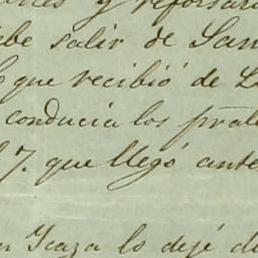 y reforsar
ebe salir de San
que recibió de L
conducia los prale
7. que llegó ante
n Icaza lo dejé de